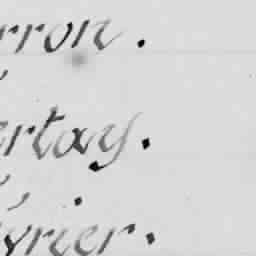 rron.
ertay.
yrier.